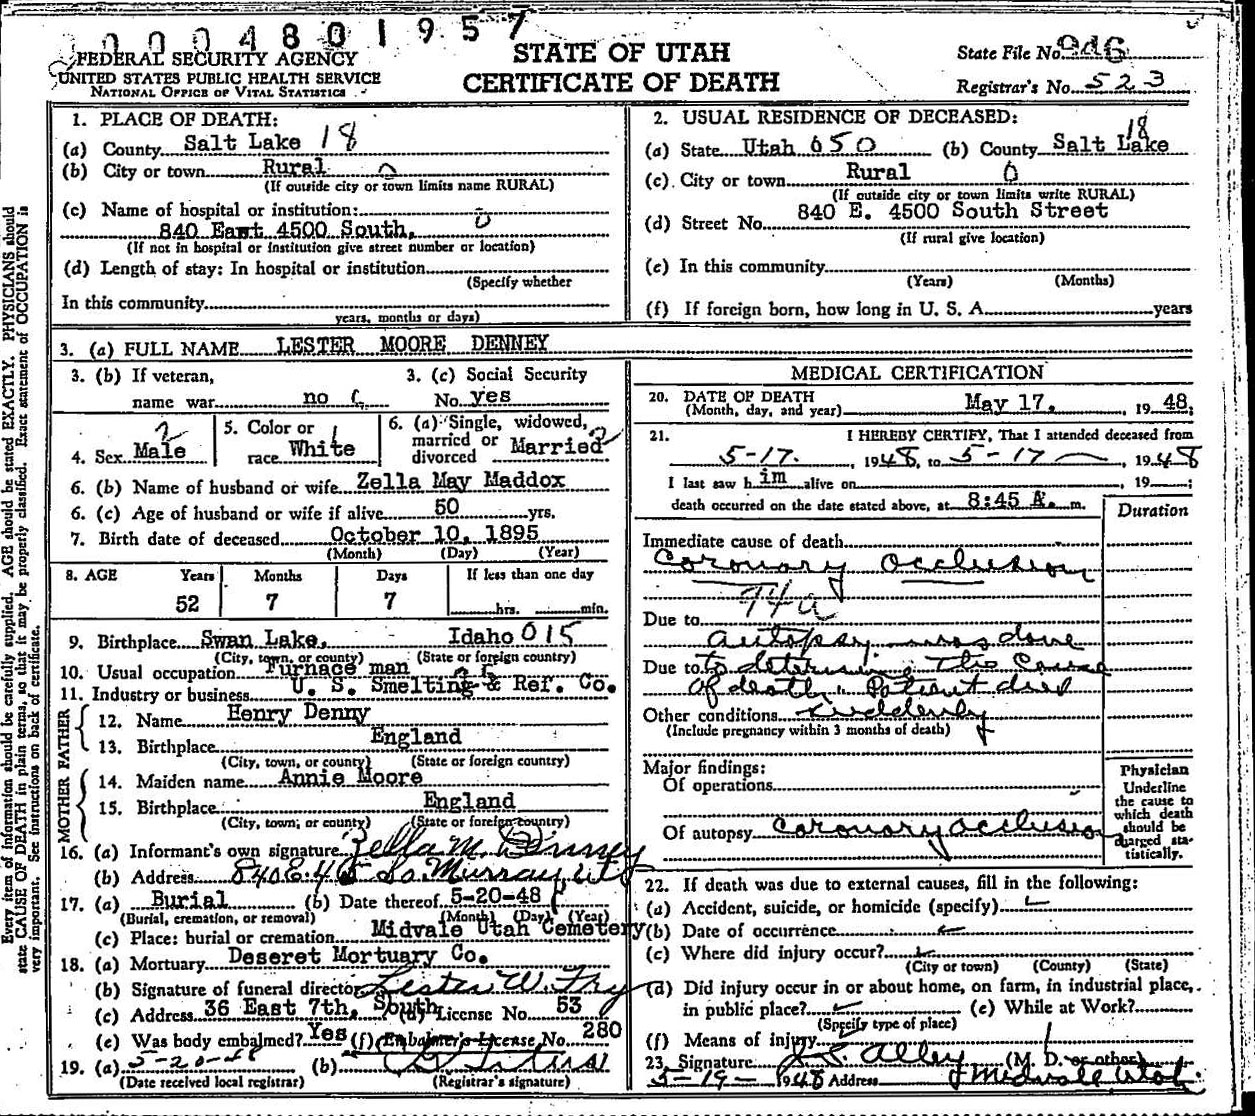 0 0 0 4 8 0 1 9 5 7
FEDERAL SECURITY AGENCY
UNITED STATES PUBLIC HEALTH SERVICE
NATIONAL OFFICE OF VITAL STATISTICS
STATE OF UTAH
CERTIFICATE OF DEATH
State File No. 946
Registrar's No. 523
1. PLACE OF DEATH:
(a) County Salt Lake 18
(b) City or town Rural 0
(If outside city or town limits name RURAL)
(c) Name of hospital or institution:
840 East 4500 South. 0
(If not in hospital or institution give street number or location)
(d) Length of stay: In hospital or institution
(Specify whether
In this community
years, months or days)
2. USUAL RESIDENCE OF DECEASED:
(a) State Utah 650 (b) County Salt Lake 18
(c) City or town Rural 0
(If outside city or town limits write RURAL)
(d) Street No. 840 E. 4500 South Street
(If rural give location)
(e) In this community
(Years) (Months)
(f) If foreign born, how long in U. S. A. years
3. (a) FULL NAME LESTER MOORE DENNEY
3. (b) If veteran,
name war no
3. (c) Social Security
No. yes
4. Sex Male 2
5. Color or
race White 1
6. (a) Single, widowed,
married or
divorced Married 2
6. (b) Name of husband or wife Zella May Maddox
6. (c) Age of husband or wife if alive 50 yrs.
7. Birth date of deceased October 10, 1895
(Month) (Day) (Year)
8. AGE Years Months Days If less than one day
52 7 7 hrs. min.
9. Birthplace Swan Lake, Idaho 015
(City, town, or county) (State or foreign country)
10. Usual occupation Furnace man
11. Industry or business U. S. Smelting & Ref. Co.
FATHER
12. Name Henry Denny
13. Birthplace England
(City, town, or county) (State or foreign country)
MOTHER
14. Maiden name Annie Moore
15. Birthplace England
(City, town, or county) (State or foreign country)
16. (a) Informant's own signature Zella M. Denney
(b) Address 840 E. 45 So. Murray Ut
17. (a) Burial (b) Date thereof 5-20-48
(Burial, cremation, or removal) (Month) (Day) (Year)
(c) Place: burial or cremation Midvale Utah Cemetery
18. (a) Mortuary Deseret Mortuary Co.
(b) Signature of funeral director Lester W. Fry
(c) Address 36 East 7th, South (d) License No. 53
(e) Was body embalmed? Yes (f) Embalmer's License No. 280
19. (a) 5-20-48 (b)
(Date received local registrar) (Registrar's signature)
MEDICAL CERTIFICATION
20. DATE OF DEATH
(Month, day, and year) May 17, 19 48;
21. I HEREBY CERTIFY, That I attended deceased from
5-17. , 1948, to 5-17 , 1948
I last saw h im alive on , 19 ;
death occurred on the date stated above, at 8:45 A. m.
Duration
Immediate cause of death
Coronary Occlusion
94a
Due to
autopsy was done
Due to to determine the cause
of death. Patient died
Other conditions suddenly
(Include pregnancy within 3 months of death)
Major findings:
Of operations
Of autopsy coronary occlusion
Physician
Underline
the cause to
which death
should be
charged sta-
tistically.
22. If death was due to external causes, fill in the following:
(a) Accident, suicide, or homicide (specify)
(b) Date of occurrence
(c) Where did injury occur?
(City or town) (County) (State)
(d) Did injury occur in or about home, on farm, in industrial place,
in public place? (e) While at Work?
(Specify type of place)
(f) Means of injury
23. Signature J. S. Alley (M. D. or other)
5-19- 1948 Address Midvale Utah
Every item of information should be carefully supplied. AGE should be stated EXACTLY. PHYSICIANS should
state CAUSE OF DEATH in plain terms, so that it may be properly classified. Exact statement of OCCUPATION is
very important. See instructions on back of certificate.